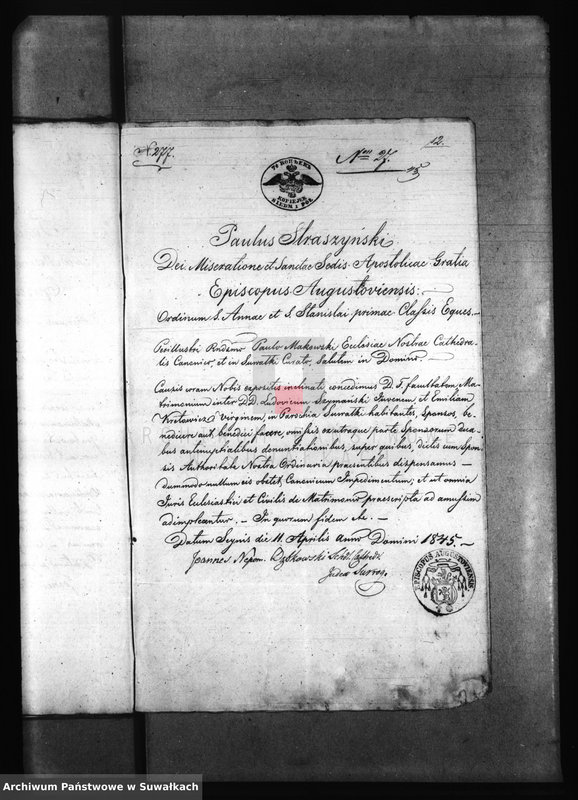 12.
N. 277.
Num 27.
75 КОПѢЕКЪ
KOPIEJEK
Paulus Straszyński
Dei Miseratione et Sanctae Sedis Apostolicae Gratia
Episcopus Augustoviensis
Ordinum S. Annae et S. Stanislai primae Classis Eques.—
Perillustri Rndmo Paulo Makowski Eclesiae Nostrae Cathedra-
lis Canonico, et in Suwałki Curato, Salutem in Domino.
Causis coram Nobis expositis inclinati, concedimus D. T. facultatem Ma-
trimonium inter DD. Ludovicum Szymański Juvenem, et Emiliam
virginem, in Parochia Suwałk habitantes, Sponsos, be-
nedicere aut benedici facere, omissis ex utraque parte Sponsorum dua-
bus antenuptialibus denuntiationibus, super quibus, dictis cum Spon-
sis Authoritate Nostra Ordinaria praesentibus dispensamus —
dummodo nullum eis obstet Canonicum Impedimentum; et ut omnia
Juris Eclesiastici et Civilis de Matrimonio praescripta ad amussim
adimpleantur. — In quorum fidem etc. —
Datum Seynis die 11 Aprilis anno Domini 1845. —
Joannes Nepom.
Judex Surrog.
EPISCOPUS AUGUSTOVIENSIS
Archiwum Państwowe w Suwałkach